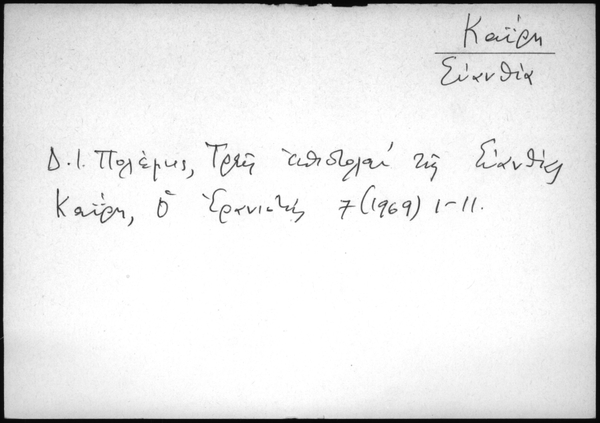 Καΐρη
Εὐανθία
Δ. Ι. Πολέμης, Τρεῖς ἐπιστολαί τῆς Εὐανθίας
Καΐρη, Ὁ Ἐρανιστής 7 (1969) 1-11.